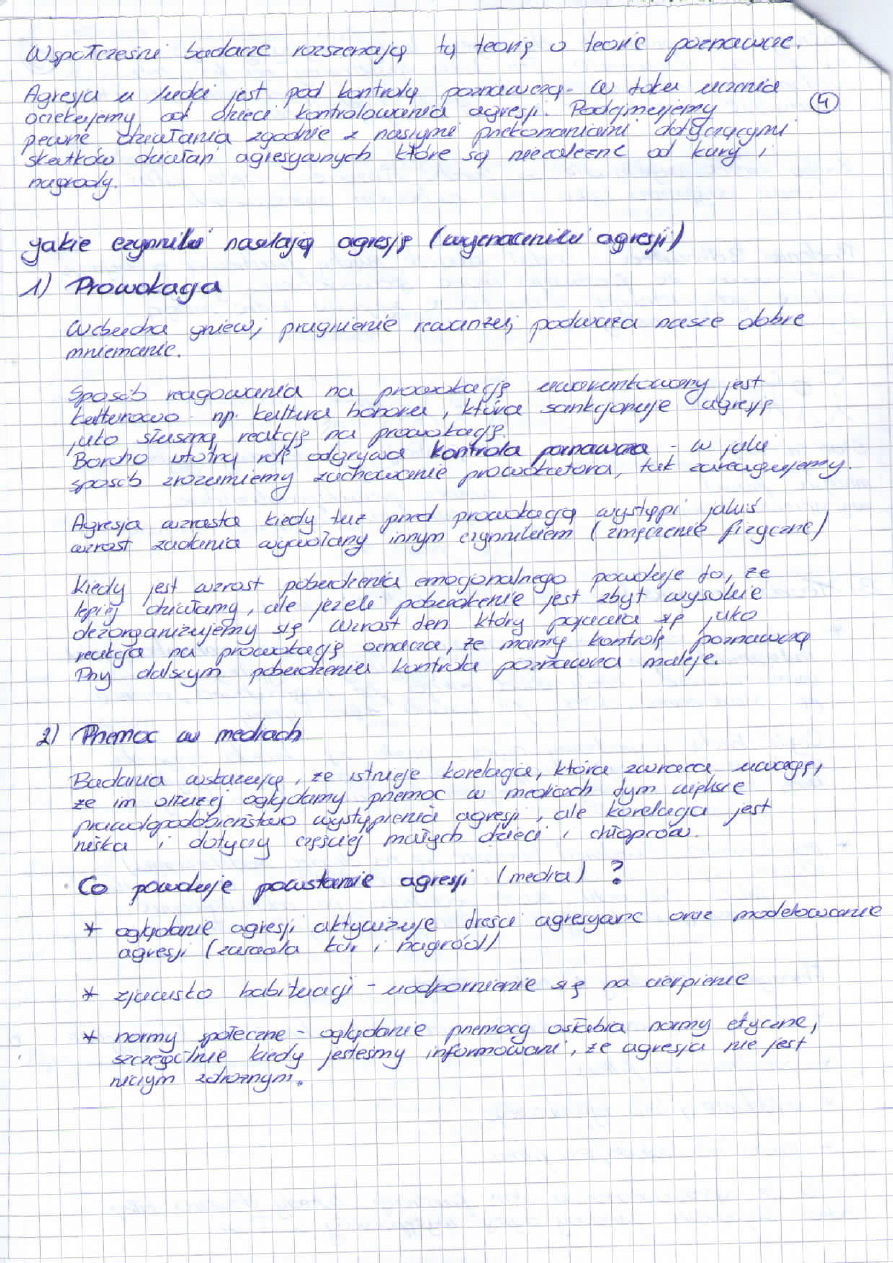 Współcześni badacze rozszerzają tą teorię o teorie poznawcze.
Agresja u ludzi jest pod kontrolą poznawczą. W toku uczenia
oczekujemy od dzieci kontrolowania agresji. Podejmujemy
④
pewne działania zgodnie z naszymi przekonaniami dotyczącymi
skutków działań agresywnych które są niezależne od kary i
nagrody.
Jakie czynniki nasilają agresję (wyznaczniki agresji)
1) Prowokacja
Wzbudza gniew, pragnienie rewanżu, podważa nasze dobre
mniemanie.
Sposób reagowania na prowokację uwarunkowany jest
kulturowo np. kultura honoru, która sankcjonuje agresję
jako słuszną reakcję na prowokację
Bardzo istotną rolę odgrywa kontrola poznawcza - w jaki
sposób zrozumiemy zachowanie prowokatora, tak zareagujemy.
Agresja wzrasta kiedy tuż przed prowokacją wystąpi jakiś
wzrost żądania wywołany innym czynnikiem (zmęczenie fizyczne)
Kiedy jest wzrost pobudzenia emocjonalnego powoduje to, że
lepiej działamy, ale jeżeli pobudzenie jest zbyt wysokie
dezorganizujemy się. Wzrost ten który pojawia się jako
reakcja na prowokację oznacza, że mamy kontrolę poznawczą
Przy dalszym pobudzeniu kontrola poznawcza maleje.
2) Przemoc w mediach
Badania wskazują, że istnieje korelacja, która zwraca uwagę,
że im dłużej oglądamy przemoc w mediach tym większe
prawdopodobieństwo wystąpienia agresji, ale korelacja jest
niska i dotyczy częściej małych dzieci i chłopców.
Co powoduje powstanie agresji (media) ?
* oglądanie agresji aktywizuje treści agresywne oraz modelowanie
agresji (zasada kar i nagród)
* zjawisko habituacji - uodpornienie się na cierpienie
* normy społeczne - oglądanie przemocy osłabia normy etyczne,
szczególnie kiedy jesteśmy informowani, że agresja nie jest
niczym zdrożnym.